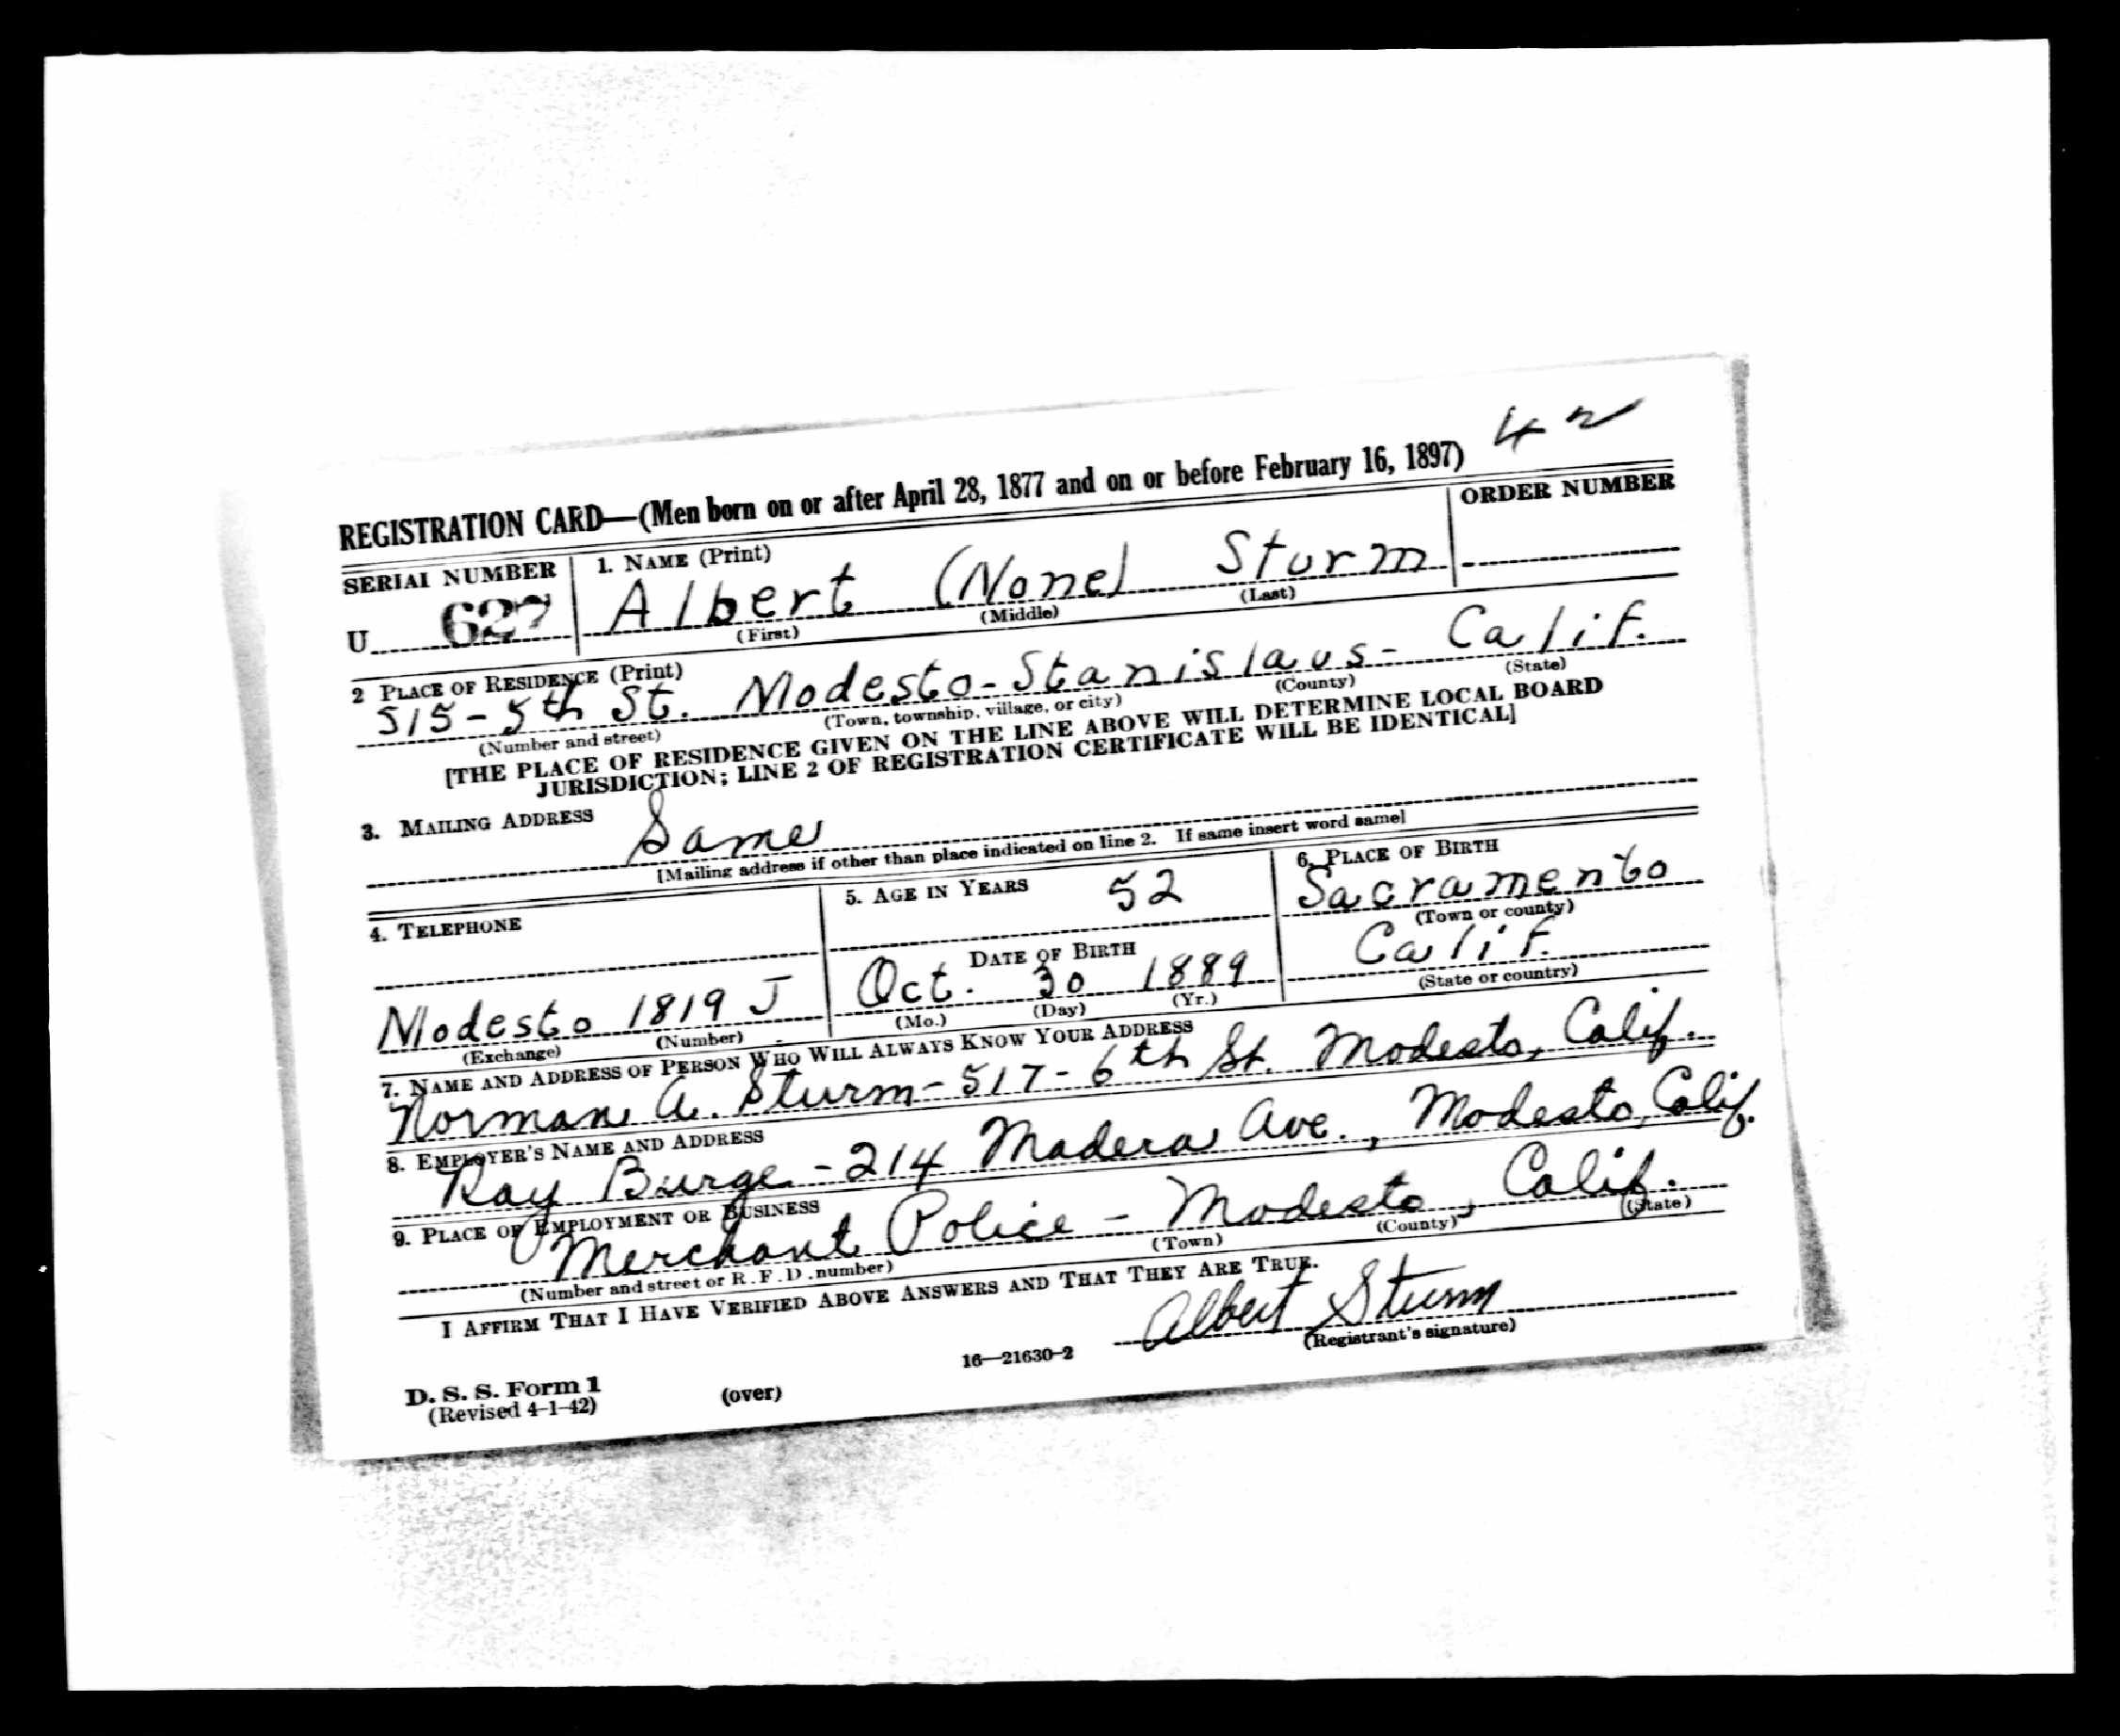 42
REGISTRATION CARD—(Men born on or after April 28, 1877 and on or before February 16, 1897)
SERIAL NUMBER
1. NAME (Print)
ORDER NUMBER
U 627
Albert (None) Sturm
(First) (Middle) (Last)
2 PLACE OF RESIDENCE (Print)
515-5th St. Modesto-Stanislaus- Calif.
(Number and street) (Town, township, village, or city) (County) (State)
[THE PLACE OF RESIDENCE GIVEN ON THE LINE ABOVE WILL DETERMINE LOCAL BOARD
JURISDICTION; LINE 2 OF REGISTRATION CERTIFICATE WILL BE IDENTICAL]
3. MAILING ADDRESS
Same
[Mailing address if other than place indicated on line 2. If same insert word same]
4. TELEPHONE
Modesto 1819 J
(Exchange) (Number)
5. AGE IN YEARS
52
DATE OF BIRTH
Oct. 30 1889
(Mo.) (Day) (Yr.)
6. PLACE OF BIRTH
Sacramento
(Town or county)
Calif.
(State or country)
7. NAME AND ADDRESS OF PERSON WHO WILL ALWAYS KNOW YOUR ADDRESS
Norman A. Sturm-517-6th St. Modesto, Calif.
8. EMPLOYER'S NAME AND ADDRESS
Ray Burge-214 Madera Ave., Modesto, Calif.
9. PLACE OF EMPLOYMENT OR BUSINESS
Merchant Police - Modesto, Calif.
(Number and street or R. F. D. number) (Town) (County) (State)
I AFFIRM THAT I HAVE VERIFIED ABOVE ANSWERS AND THAT THEY ARE TRUE.
Albert Sturm
(Registrant's signature)
D. S. S. Form 1
(Revised 4-1-42)
(over)
16—21630-2